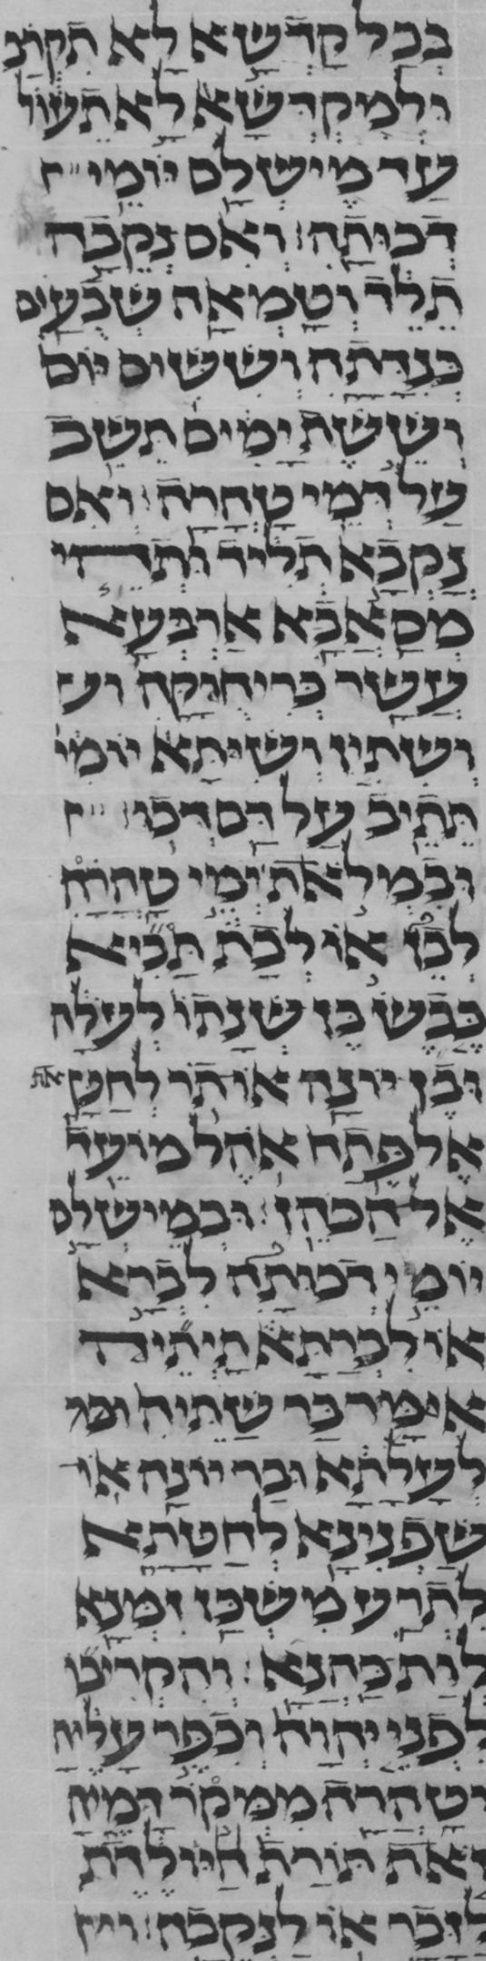 בכל קדשא לא תקרב
ולמקדשא לא תעול
עד מישלם יומי
דכותה׃ ואם נקבה
תלד וטמאה שבעים
כנדתה וששים יום
וששת ימים תשב
על דמי טהרה׃ ואם
נקבא תליד ותהי
מסאבא ארבעא
עשר כריחוקה
ושתין ושיתא יומי
תתיב על דם
ובמלאת ימי טהרה
לבן או לבת תביא
כבש בן שנתו לעלה
ובן יונה או תר לחטאת
אל פתח אהל מועד
אל הכהן׃ ובמישלם
יומי דכותה לברא
או לברתא תיתי
אימר בר שתיה
לעלתא ובר יונה או
שפנינא לחטתא
לתרע משכן זמנא
לות כהנא׃ והקריבו
לפני יהוה וכפר עליה
וטהרה ממקר דמיה
זאת תורת היולדת
לזכר או לנקבה׃